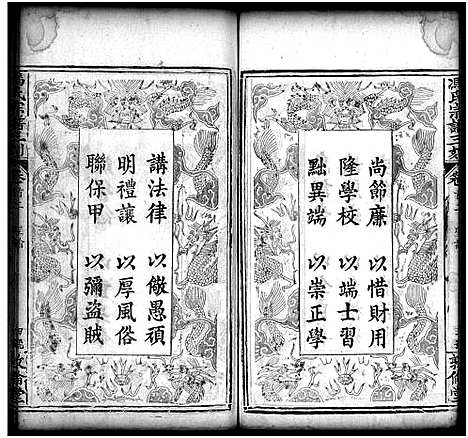 尚節廉 以惜財用
隆學校 以端士習
黜異端 以崇正學
講法律 以儆愚頑
明禮讓 以厚風俗
聯保甲 以彌盜賊